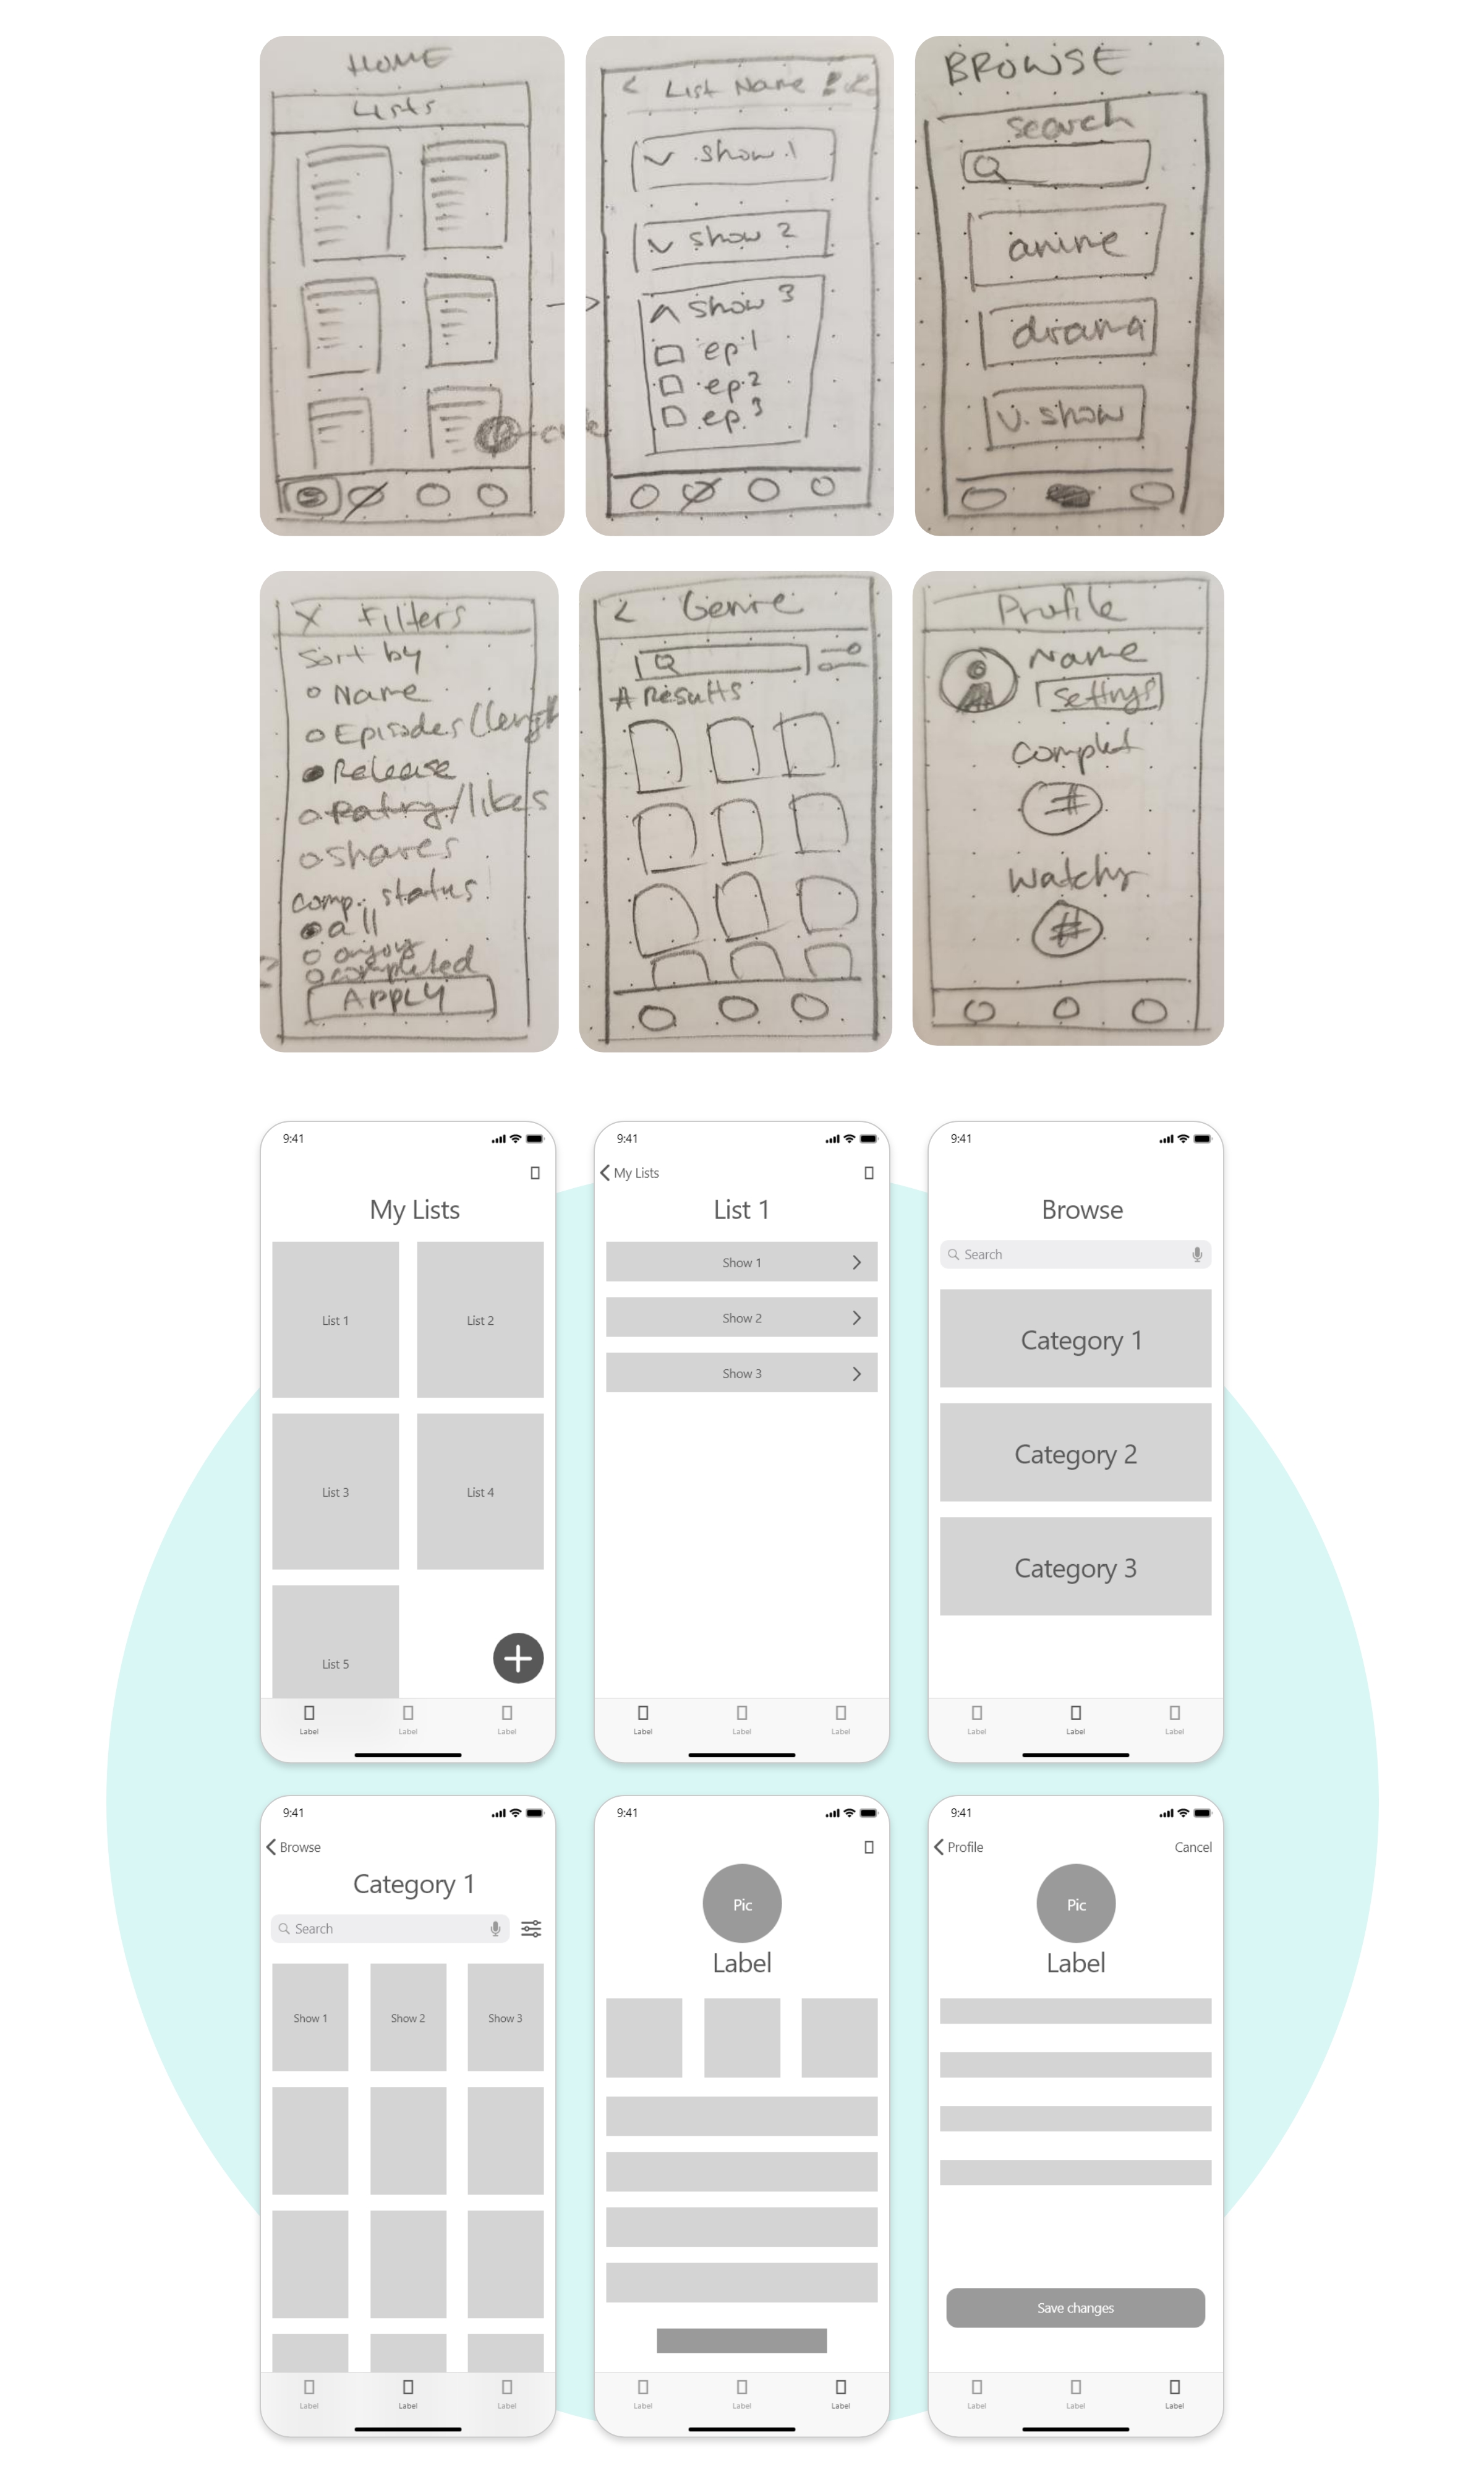 HOME
Lists
< List Name
show 1
show 2
show 3
ep 1
ep 2
ep 3
BROWSE
search
anime
drama
v. show
X Filters
Sort by
Name
Episodes (length
Release
Rating/likes
shares
comp. status
all
completed
APPLY
< Genre
# Results
Profile
Name
Settings
Complet
#
#
9:41
My Lists
List 1
List 2
List 3
List 4
List 5
Label
Label
Label
9:41
My Lists
List 1
Show 1
Show 2
Show 3
Label
Label
Label
9:41
Browse
Search
Category 1
Category 2
Category 3
Label
Label
Label
9:41
Browse
Category 1
Search
Show 1
Show 2
Show 3
Label
Label
Label
9:41
Pic
Label
Label
Label
Label
9:41
Profile
Cancel
Pic
Label
Save changes
Label
Label
Label